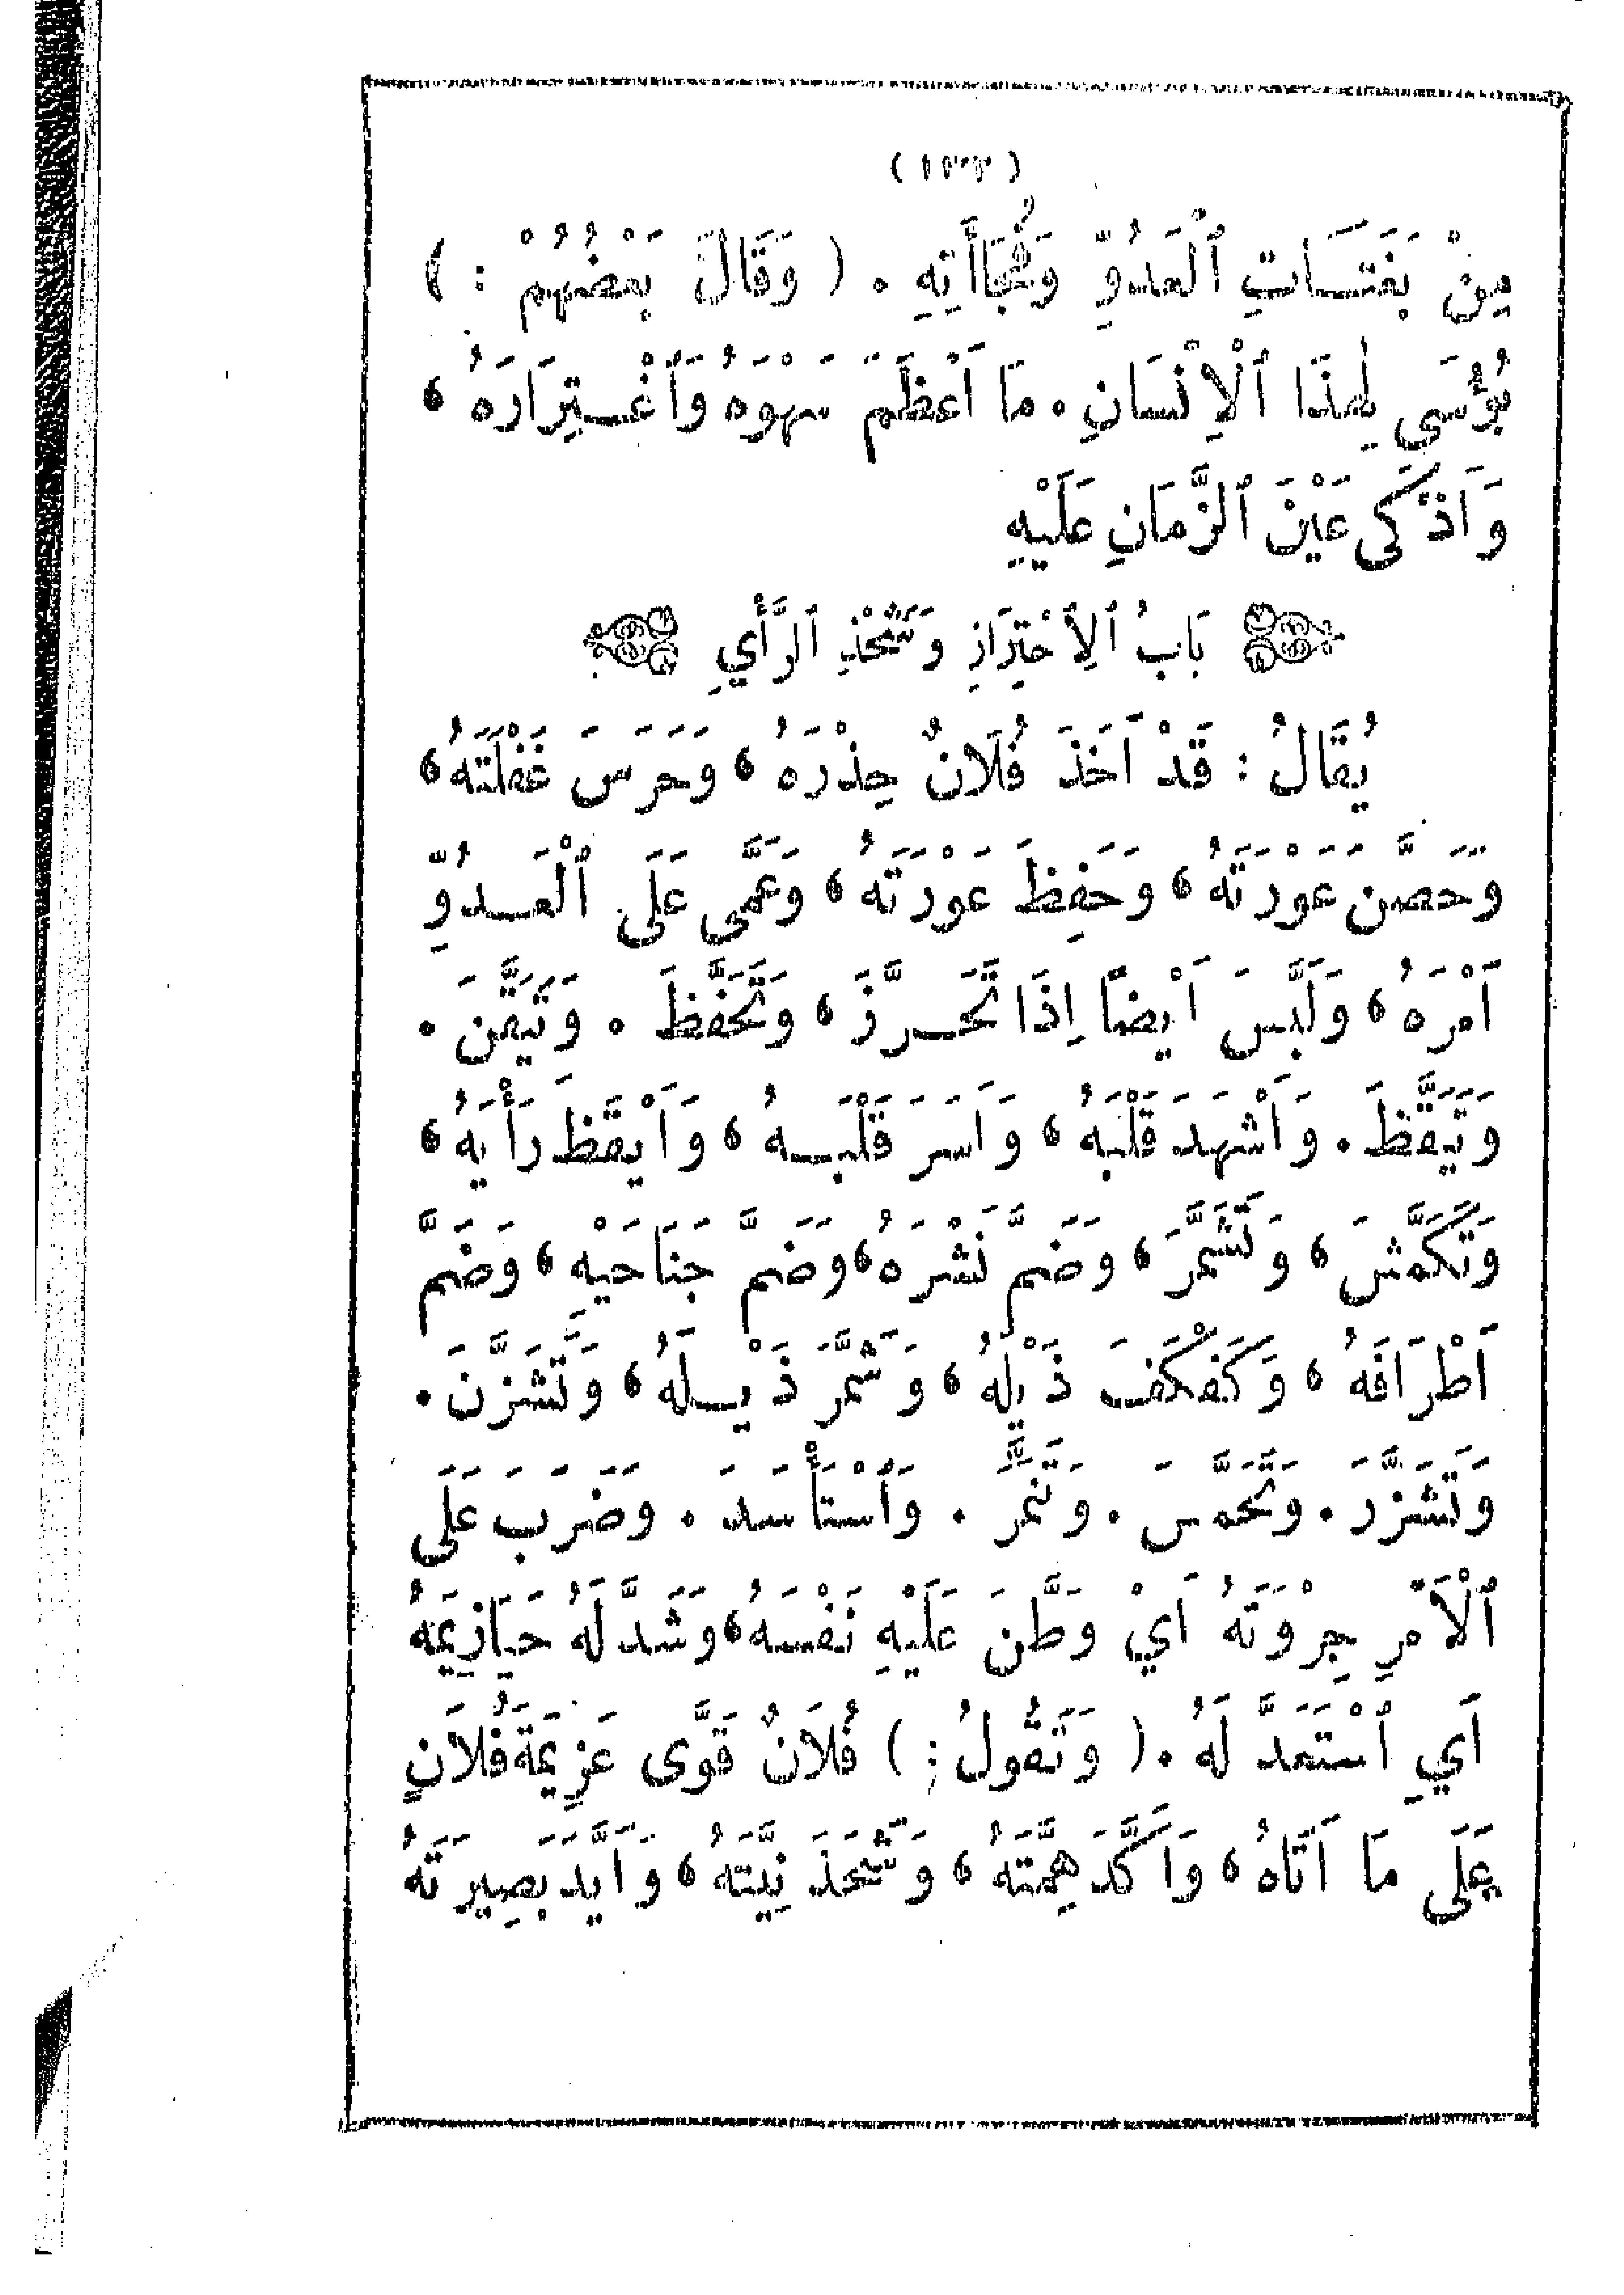 (١٣٣)
مِنْ بَغَتَاتِ ٱلْعَدُوِّ وَفُجَاأَتِهِ . ( وَقَالَ بَعْضُهُمْ : )
بُؤْسَى لِهٰذَا ٱلْإِنْسَانِ . مَا أَعْظَمَ سَهْوَهُ وَٱغْتِرَارَهُ ،
وَأَذْكَى عَيْنَ ٱلزَّمَانِ عَلَيْهِ
بَابُ ٱلِٱحْتِرَازِ وَشَحْذِ ٱلرَّأْيِ
يُقَالُ : قَدْ أَخَذَ فُلَانٌ حِذْرَهُ ، وَحَرَسَ غَفْلَتَهُ ،
وَحَصَّنَ عَوْرَتَهُ ، وَحَفِظَ عَوْرَتَهُ ، وَعَمَّى عَلَى ٱلْعَدُوِّ
أَمْرَهُ ، وَلَبَّسَ أَيْضًا إِذَا تَحَرَّزَ ، وَتَحَفَّظَ . وَتَيَقَّنَ .
وَتَيَقَّظَ . وَأَشْهَدَ قَلْبَهُ ، وَأَسَرَ قَلْبَهُ ، وَأَيْقَظَ رَأْيَهُ ،
وَتَكَمَّشَ ، وَتَشَمَّرَ ، وَضَمَّ نَشْرَهُ ، وَضَمَّ جَنَاحَيْهِ ، وَضَمَّ
أَطْرَافَهُ ، وَكَفْكَفَ ذَيْلَهُ ، وَشَمَّرَ ذَيْلَهُ ، وَتَشَزَّنَ .
وَتَشَزَّرَ . وَتَحَمَّسَ . وَتَنَمَّرَ . وَٱسْتَأْسَدَ . وَضَرَبَ عَلَى
ٱلْأَمْرِ جِرْوَتَهُ أَيْ وَطَّنَ عَلَيْهِ نَفْسَهُ ، وَشَدَّ لَهُ حَيَازِيمَهُ
أَيِ ٱسْتَعَدَّ لَهُ . ( وَتَقُولُ : ) فُلَانٌ قَوَّى عَزِيمَةَ فُلَانٍ
عَلَى مَا أَتَاهُ ، وَأَكَّدَ هِمَّتَهُ ، وَشَحَذَ نِيَّتَهُ ، وَأَيَّدَ بَصِيرَتَهُ